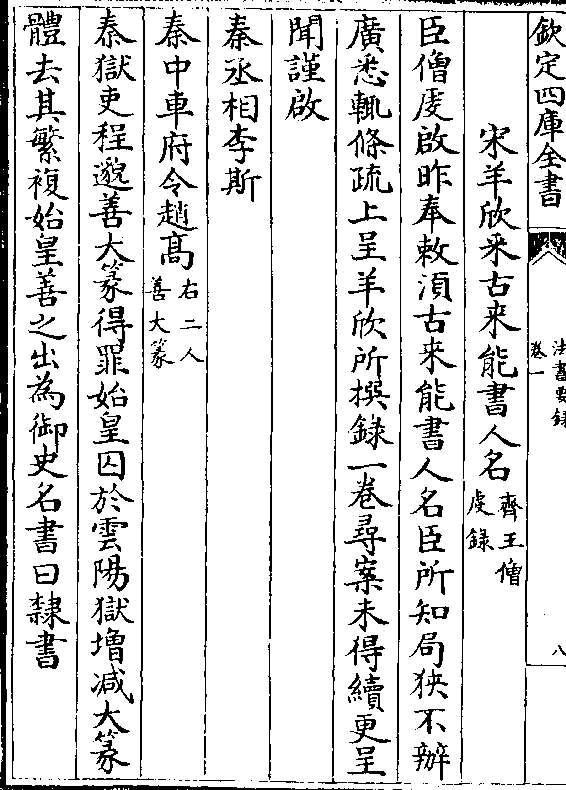 欽定四庫全書
法書要録
卷一
八
宋羊欣采古来能書人名
齊王僧
䖍録
臣僧䖍啟昨奉敕湏古来能書人名臣所知局狹不辦
廣悉輒條疏上呈羊欣所撰録一卷尋案未得續更呈
聞謹啟
秦丞相李斯
秦中車府令趙髙
右二人
善大篆
秦獄吏程邈善大篆得罪始皇囚於雲陽獄增减大篆
體去其繁複始皇善之出為御史名書曰隸書